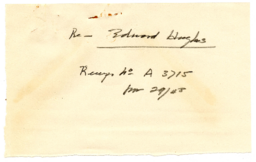 Re — Edward Hughes
Recep. No A 3715
Nov 29/43